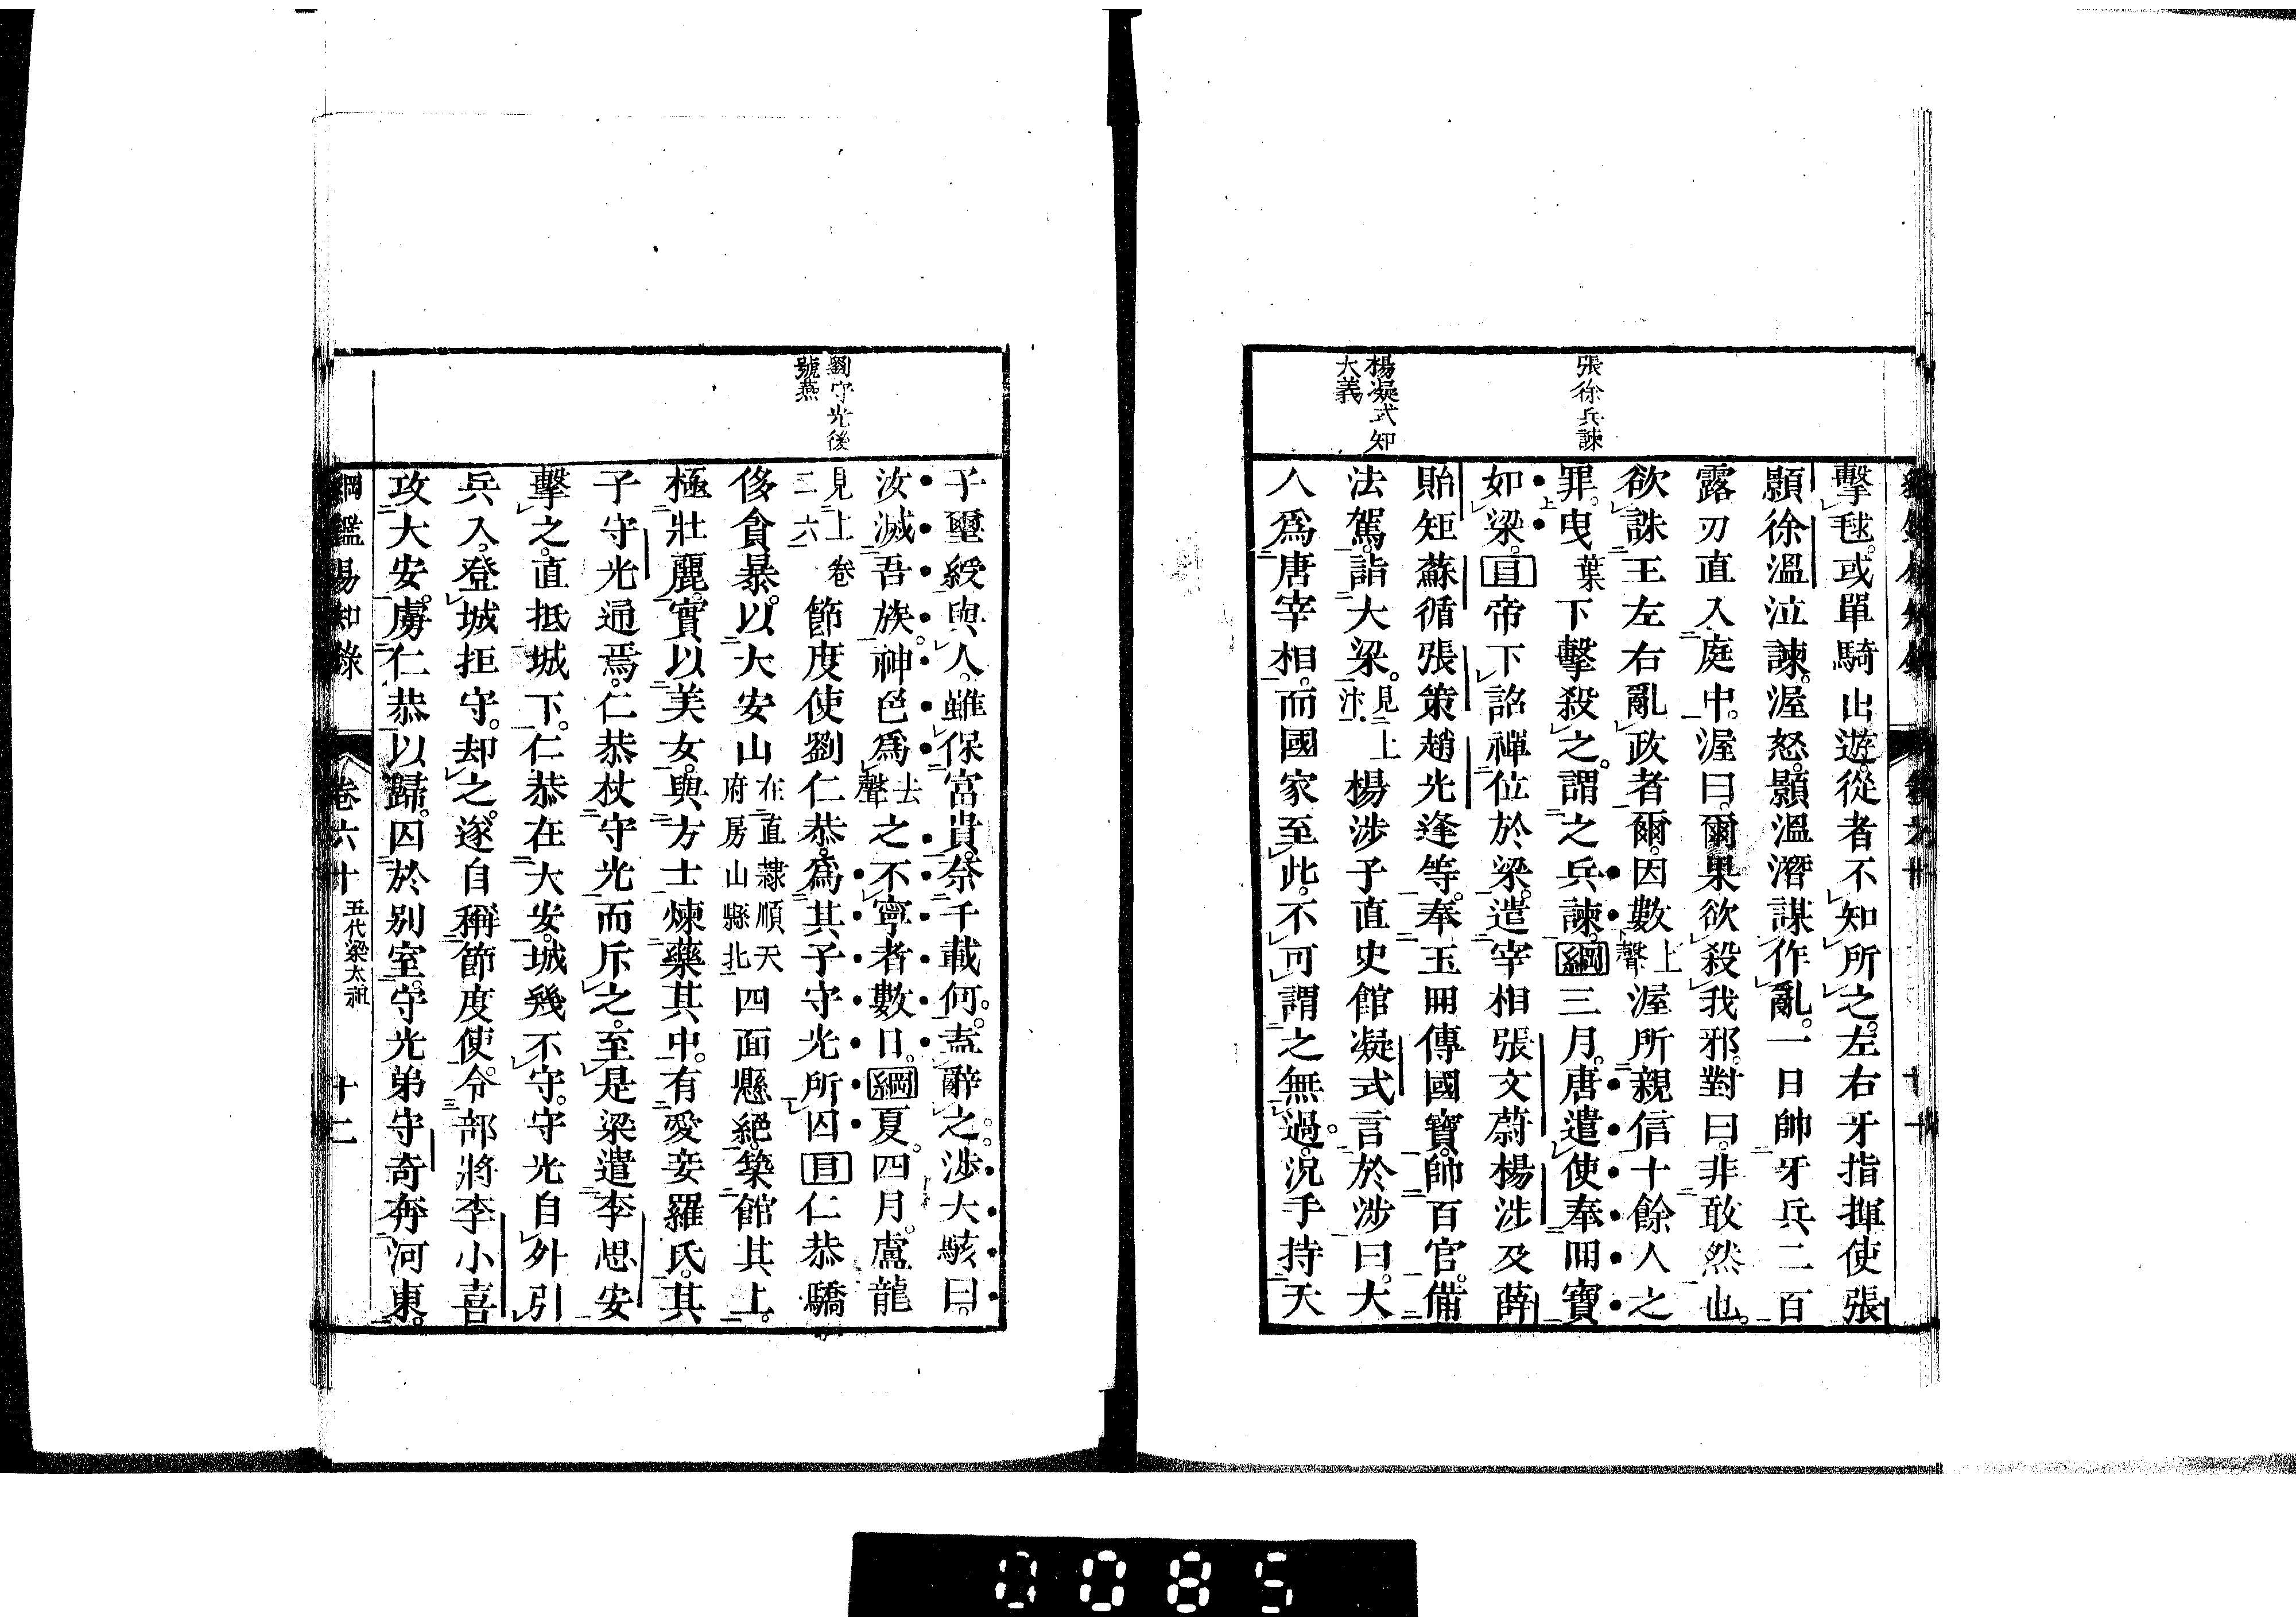 張徐兵諫
楊凝式知
大義
擊毬。或單騎出遊。從者不知所之。左右牙指揮使張
顥徐溫泣諫。渥怒。顥溫潛謀作亂。一日帥牙兵二百
露刃直入庭中。渥曰。爾果欲殺我邪。對曰。非敢然也。
欲誅王左右亂政者爾。因數上聲渥所親信十餘人之
罪。曳葉下擊殺之。謂之兵諫。綱三月。唐遣使奉冊寶
如梁。目帝下詔禪位於梁。遣宰相張文蔚楊涉及薛
貽矩蘇循張策趙光逢等。奉玉冊傳國寶。帥百官。備
法駕。詣大梁。見上汴楊涉子直史館凝式言於涉曰。大
人爲唐宰相。而國家至此。不可謂之無過。況手持天
劉守光後
號燕
子璽綬與人。雖保富貴。奈千載何。盍辭之。涉大駭曰。
汝滅吾族。神色爲去聲之不寧者數日。綱夏。四月。盧龍
見上卷二六節度使劉仁恭。爲其子守光所囚目仁恭驕
侈貪暴。以大安山在直隸順天府房山縣北四面懸絕。築館其上。
極壯麗。實以美女。與方士煉藥其中。有愛妾羅氏。其
子守光通焉。仁恭杖守光而斥之。至是梁遣李思安
擊之。直抵城下。仁恭在大安。城幾不守。守光自外引
兵入。登城拒守。却之。遂自稱節度使。令部將李小喜
攻大安。虜仁恭以歸。囚於別室。守光弟守奇奔河東。
綱鑑易知錄 卷六十 五代梁太祖 十二